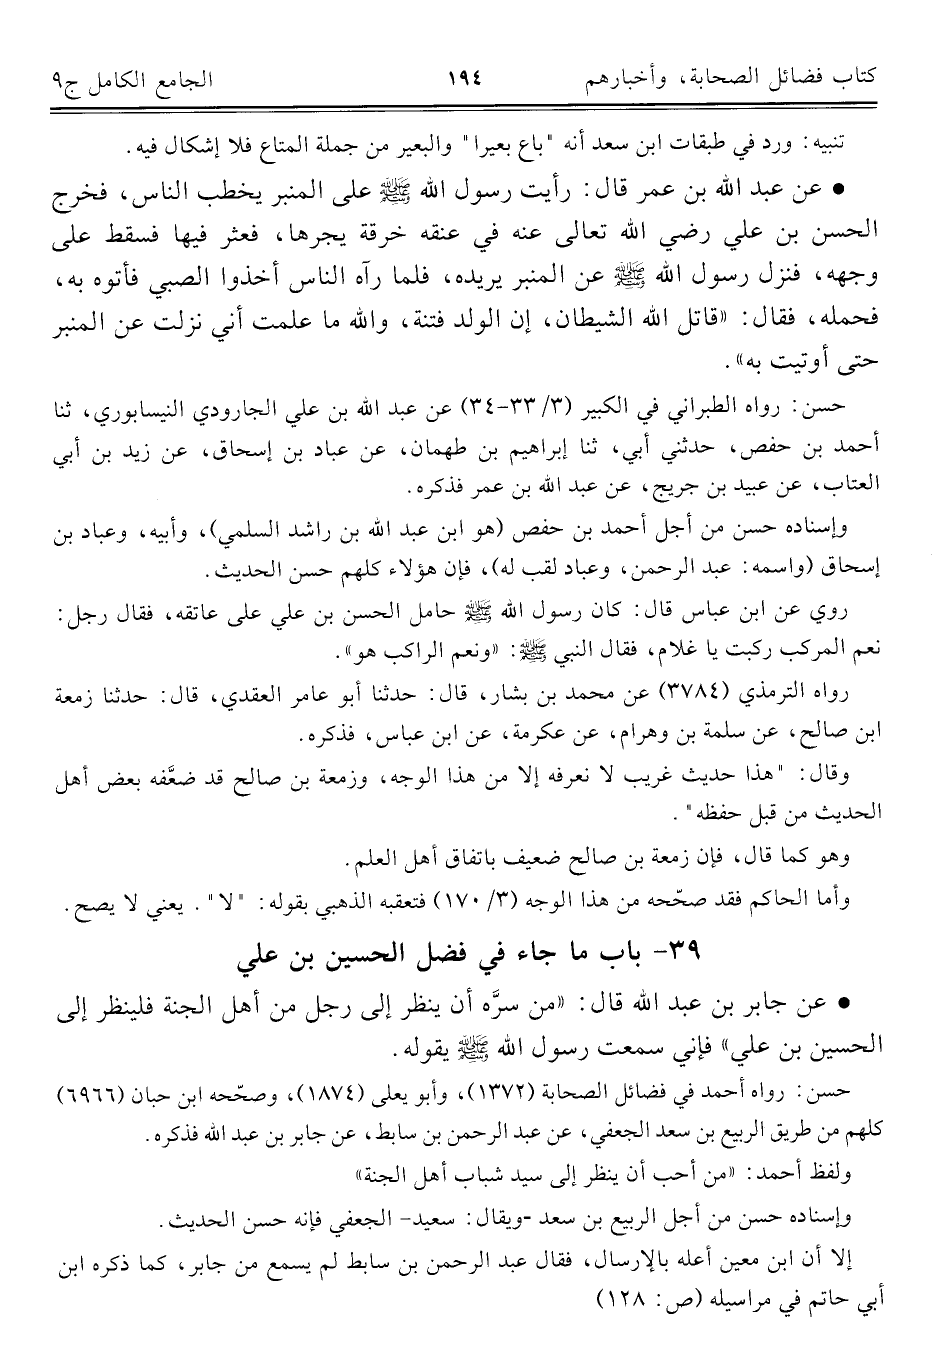 كتاب فضائل الصحابة، وأخبارهم ١٩٤ الجامع الكامل ج٩
تنبيه: ورد في طبقات ابن سعد أنه "باع بعيرا" والبعير من جملة المتاع فلا إشكال فيه.
• عن عبد الله بن عمر قال: رأيت رسول الله ﷺ على المنبر يخطب الناس، فخرج
الحسن بن علي رضي الله تعالى عنه في عنقه خرقة يجرها، فعثر فيها فسقط على
وجهه، فنزل رسول الله ﷺ عن المنبر يريده، فلما رآه الناس أخذوا الصبي فأتوه به،
فحمله، فقال: «قاتل الله الشيطان، إن الولد فتنة، والله ما علمت أني نزلت عن المنبر
حتى أوتيت به».
حسن: رواه الطبراني في الكبير (٣/ ٣٣-٣٤) عن عبد الله بن علي الجارودي النيسابوري، ثنا
أحمد بن حفص، حدثني أبي، ثنا إبراهيم بن طهمان، عن عباد بن إسحاق، عن زيد بن أبي
العتاب، عن عبيد بن جريج، عن عبد الله بن عمر فذكره.
وإسناده حسن من أجل أحمد بن حفص (هو ابن عبد الله بن راشد السلمي)، وأبيه، وعباد بن
إسحاق (واسمه: عبد الرحمن، وعباد لقب له)، فإن هؤلاء كلهم حسن الحديث.
روي عن ابن عباس قال: كان رسول الله ﷺ حامل الحسن بن علي على عاتقه، فقال رجل:
نعم المركب ركبت يا غلام، فقال النبي ﷺ: «ونعم الراكب هو».
رواه الترمذي (٣٧٨٤) عن محمد بن بشار، قال: حدثنا أبو عامر العقدي، قال: حدثنا زمعة
ابن صالح، عن سلمة بن وهرام، عن عكرمة، عن ابن عباس، فذكره.
وقال: "هذا حديث غريب لا نعرفه إلا من هذا الوجه، وزمعة بن صالح قد ضعَّفه بعض أهل
الحديث من قبل حفظه".
وهو كما قال، فإن زمعة بن صالح ضعيف باتفاق أهل العلم.
وأما الحاكم فقد صحّحه من هذا الوجه (٣/ ١٧٠) فتعقبه الذهبي بقوله: "لا". يعني لا يصح.
٣٩- باب ما جاء في فضل الحسين بن علي
• عن جابر بن عبد الله قال: «من سرَّه أن ينظر إلى رجل من أهل الجنة فلينظر إلى
الحسين بن علي» فإني سمعت رسول الله ﷺ يقوله.
حسن: رواه أحمد في فضائل الصحابة (١٣٧٢)، وأبو يعلى (١٨٧٤)، وصحّحه ابن حبان (٦٩٦٦)
كلهم من طريق الربيع بن سعد الجعفي، عن عبد الرحمن بن سابط، عن جابر بن عبد الله فذكره.
ولفظ أحمد: «من أحب أن ينظر إلى سيد شباب أهل الجنة»
وإسناده حسن من أجل الربيع بن سعد -ويقال: سعيد- الجعفي فإنه حسن الحديث.
إلا أن ابن معين أعله بالإرسال، فقال عبد الرحمن بن سابط لم يسمع من جابر، كما ذكره ابن
أبي حاتم في مراسيله (ص: ١٢٨)